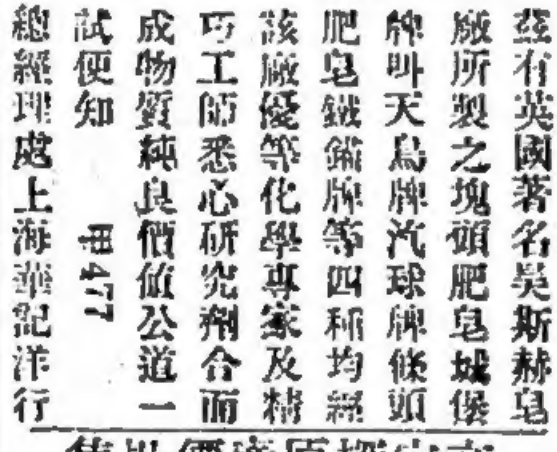 茲有英國著名吳斯赫皂
廠所製之塊頭肥皂城堡
牌叫天鳥牌汽球牌條頭
肥皂鐵錨牌等四種均經
該廠優等化學專家及精
巧工師悉心研究劑合而
成物質純良價值公道一
試便知 申477
總經理處上海華記洋行